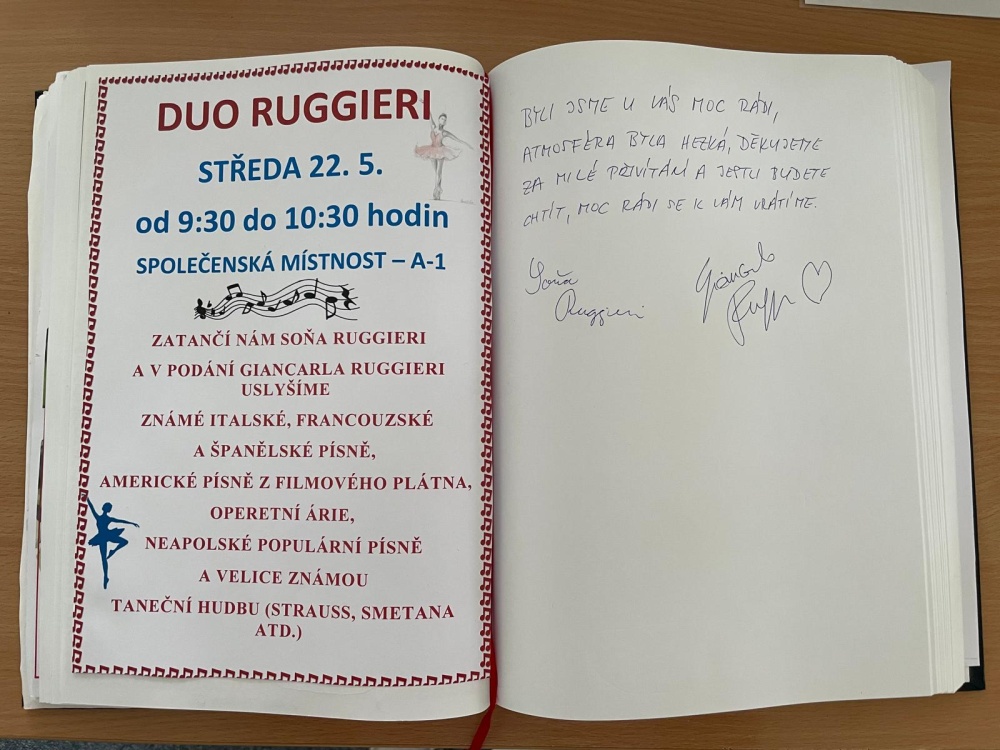 DUO RUGGIERI
STŘEDA 22. 5.
od 9:30 do 10:30 hodin
SPOLEČENSKÁ MÍSTNOST – A-1
ZATANČÍ NÁM SOŇA RUGGIERI
A V PODÁNÍ GIANCARLA RUGGIERI
USLYŠÍME
ZNÁMÉ ITALSKÉ, FRANCOUZSKÉ
A ŠPANĚLSKÉ PÍSNĚ,
AMERICKÉ PÍSNĚ Z FILMOVÉHO PLÁTNA,
OPERETNÍ ÁRIE,
NEAPOLSKÉ POPULÁRNÍ PÍSNĚ
A VELICE ZNÁMOU
TANEČNÍ HUDBU (STRAUSS, SMETANA
ATD.)
BYLI JSME U VÁS MOC RÁDI,
ATMOSFÉRA BYLA HEZKÁ, DĚKUJEME
ZA MILÉ PŘIVÍTÁNÍ A JESTLI BUDETE
CHTÍT, MOC RÁDI SE K VÁM VRÁTÍME.
Soňa
Ruggieri
Giancarlo